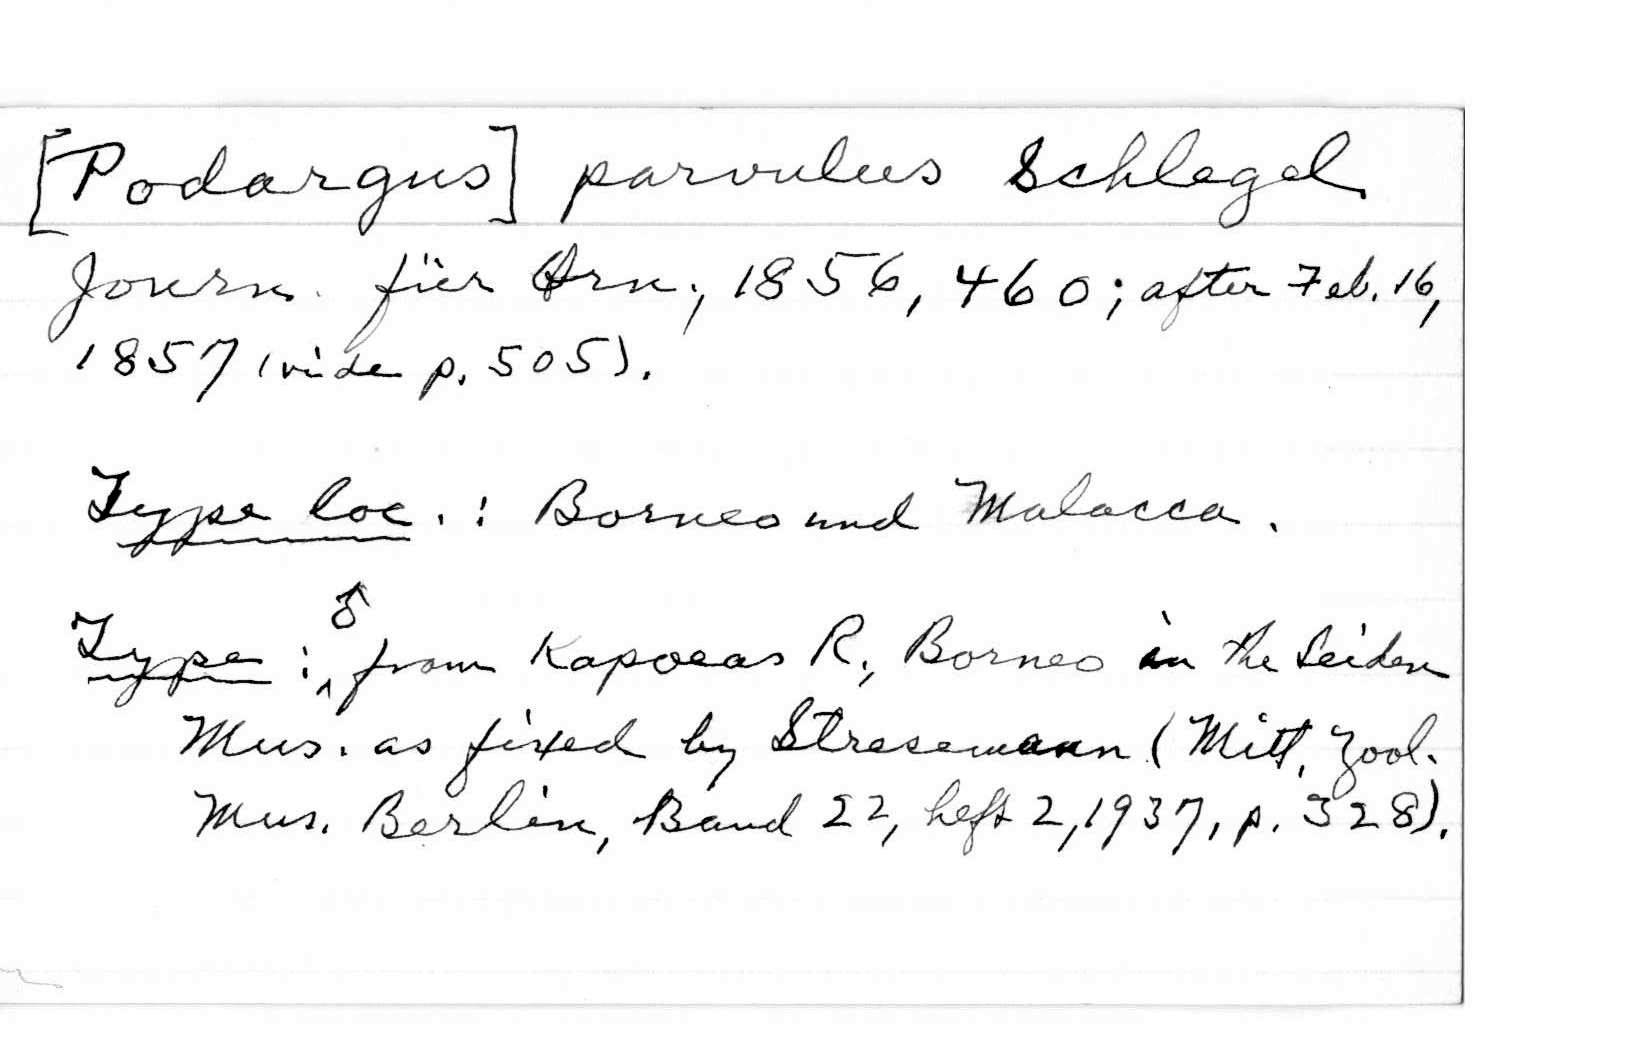 [Podargus] parvulus Schlegel
Journ. für Orn., 1856, 460; after Feb. 16,
1857 (vide p. 505).
Type loc.: Borneo und Malacca.
Type: ♂ from Kapoeas R., Borneo in the Leiden
Mus. as fixed by Stresemann (Mitt. Zool.
Mus. Berlin, Band 22, heft 2, 1937, p. 328).